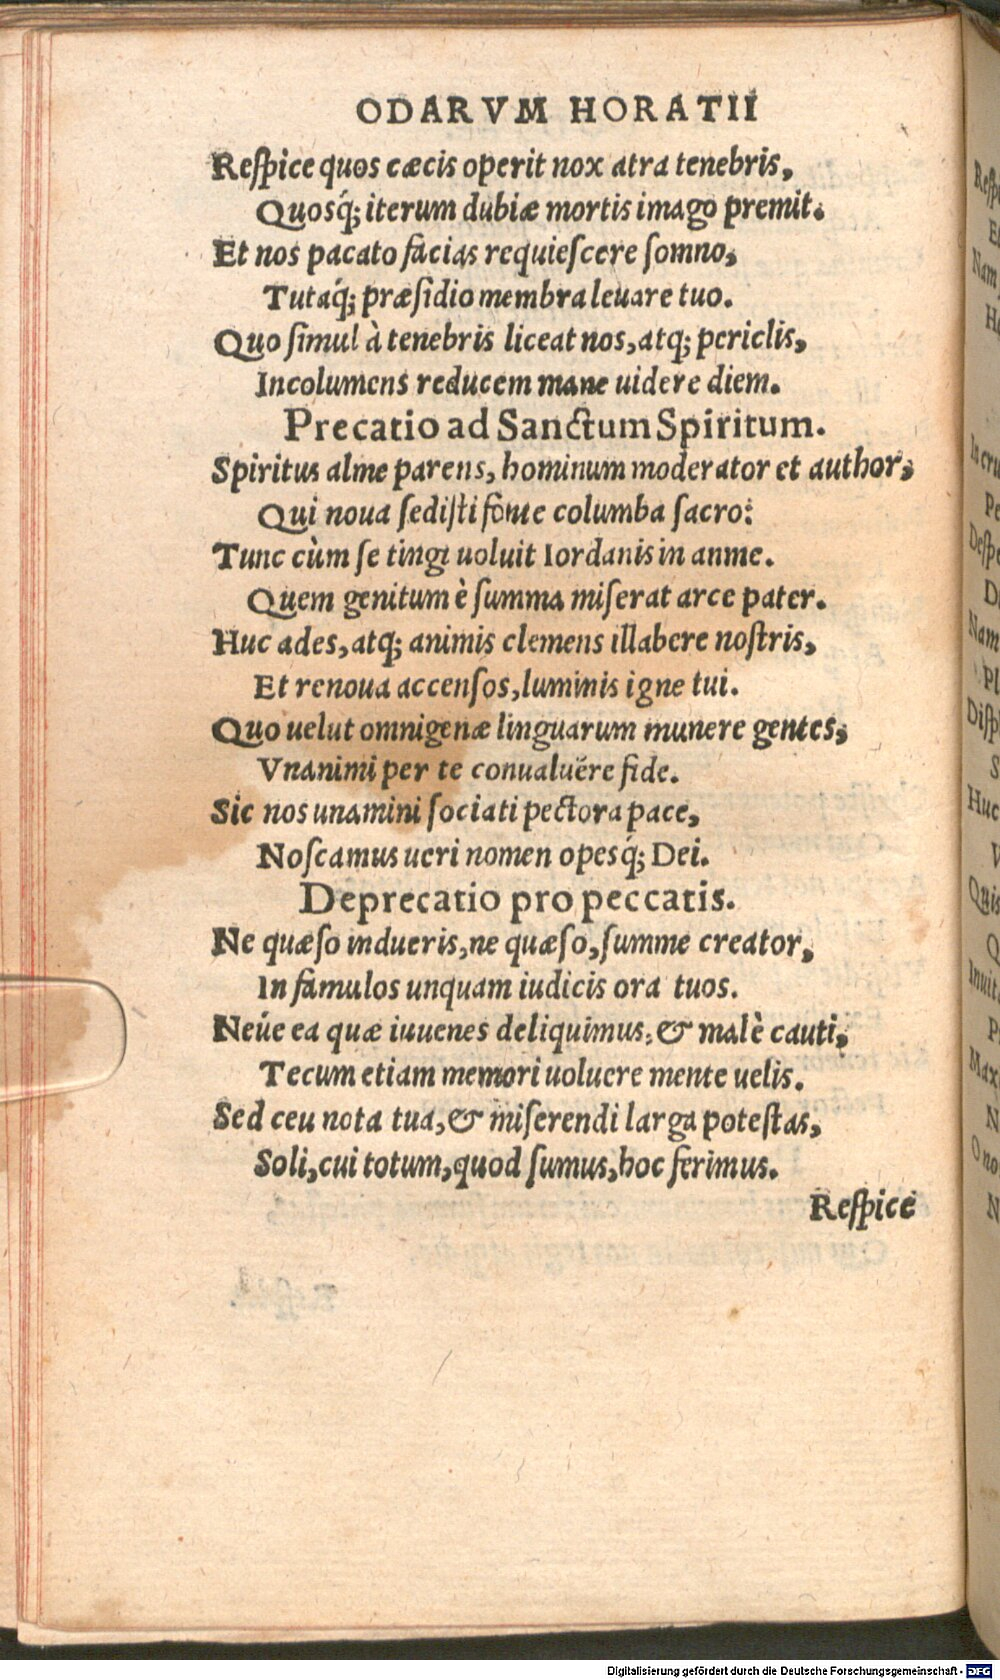 ODARVM HORATII
Reſpice quos cæcis operit nox atra tenebris,
Quosq́; iterum dubiæ mortis imago premit.
Et nos pacato facias requieſcere ſomno,
Tutaq́; præſidio membra leuare tuo.
Quo ſimul à tenebris liceat nos, atq; periclis,
Incolumens reducem mane uidere diem.
Precatio ad Sanctum Spiritum.
Spiritus alme parens, hominum moderator et author,
Qui noua ſediſti fonte columba ſacro:
Tunc cùm ſe tingi uoluit Iordanis in amne.
Quem genitum è ſumma miſerat arce pater.
Huc ades, atq; animis clemens illabere noſtris,
Et renoua accenſos, luminis igne tui.
Quo uelut omnigenæ linguarum munere gentes,
Vnanimi per te conualuêre fide.
Sic nos unamini ſociati pectora pace,
Noſcamus ueri nomen opesq́; Dei.
Deprecatio pro peccatis.
Ne quæſo indueris, ne quæſo, ſumme creator,
In famulos unquam iudicis ora tuos.
Neúe ea quæ iuuenes deliquimus, & malè cauti,
Tecum etiam memori uoluere mente uelis.
Sed ceu nota tua, & miſerendi larga poteſtas,
Soli, cui totum, quod ſumus, hoc ferimus.
Reſpice
Digitalisierung gefördert durch die Deutsche Forschungsgemeinschaft - DFG